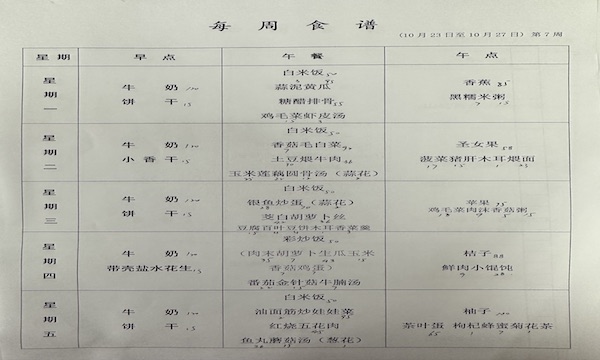 每周食谱
(10月23日至10月27日) 第7周
星期 早点 午餐 午点
星期一
牛奶
饼干
白米饭
蒜泥黄瓜
糖醋排骨
鸡毛菜虾皮汤
香蕉 85
黑糯米粥
星期二
牛奶
小香干
白米饭
香菇毛白菜
土豆煨牛肉
玉米莲藕圆骨汤(蒜花)
圣女果
菠菜猪肝木耳煨面
星期三
牛奶
饼干
白米饭
银鱼炒蛋(蒜花)
茭白胡萝卜丝
豆腐百叶豆饼木耳香菜羹
苹果
鸡毛菜肉沫香菇粥
星期四
牛奶
带壳盐水花生
彩炒饭
(肉末胡萝卜生瓜玉米
香菇鸡蛋)
番茄金针菇牛腩汤
桔子
鲜肉小馄饨
星期五
牛奶
饼干
白米饭
油面筋炒娃娃菜
红烧五花肉
鱼丸蘑菇汤(葱花)
柚子
茶叶蛋 枸杞蜂蜜菊花茶